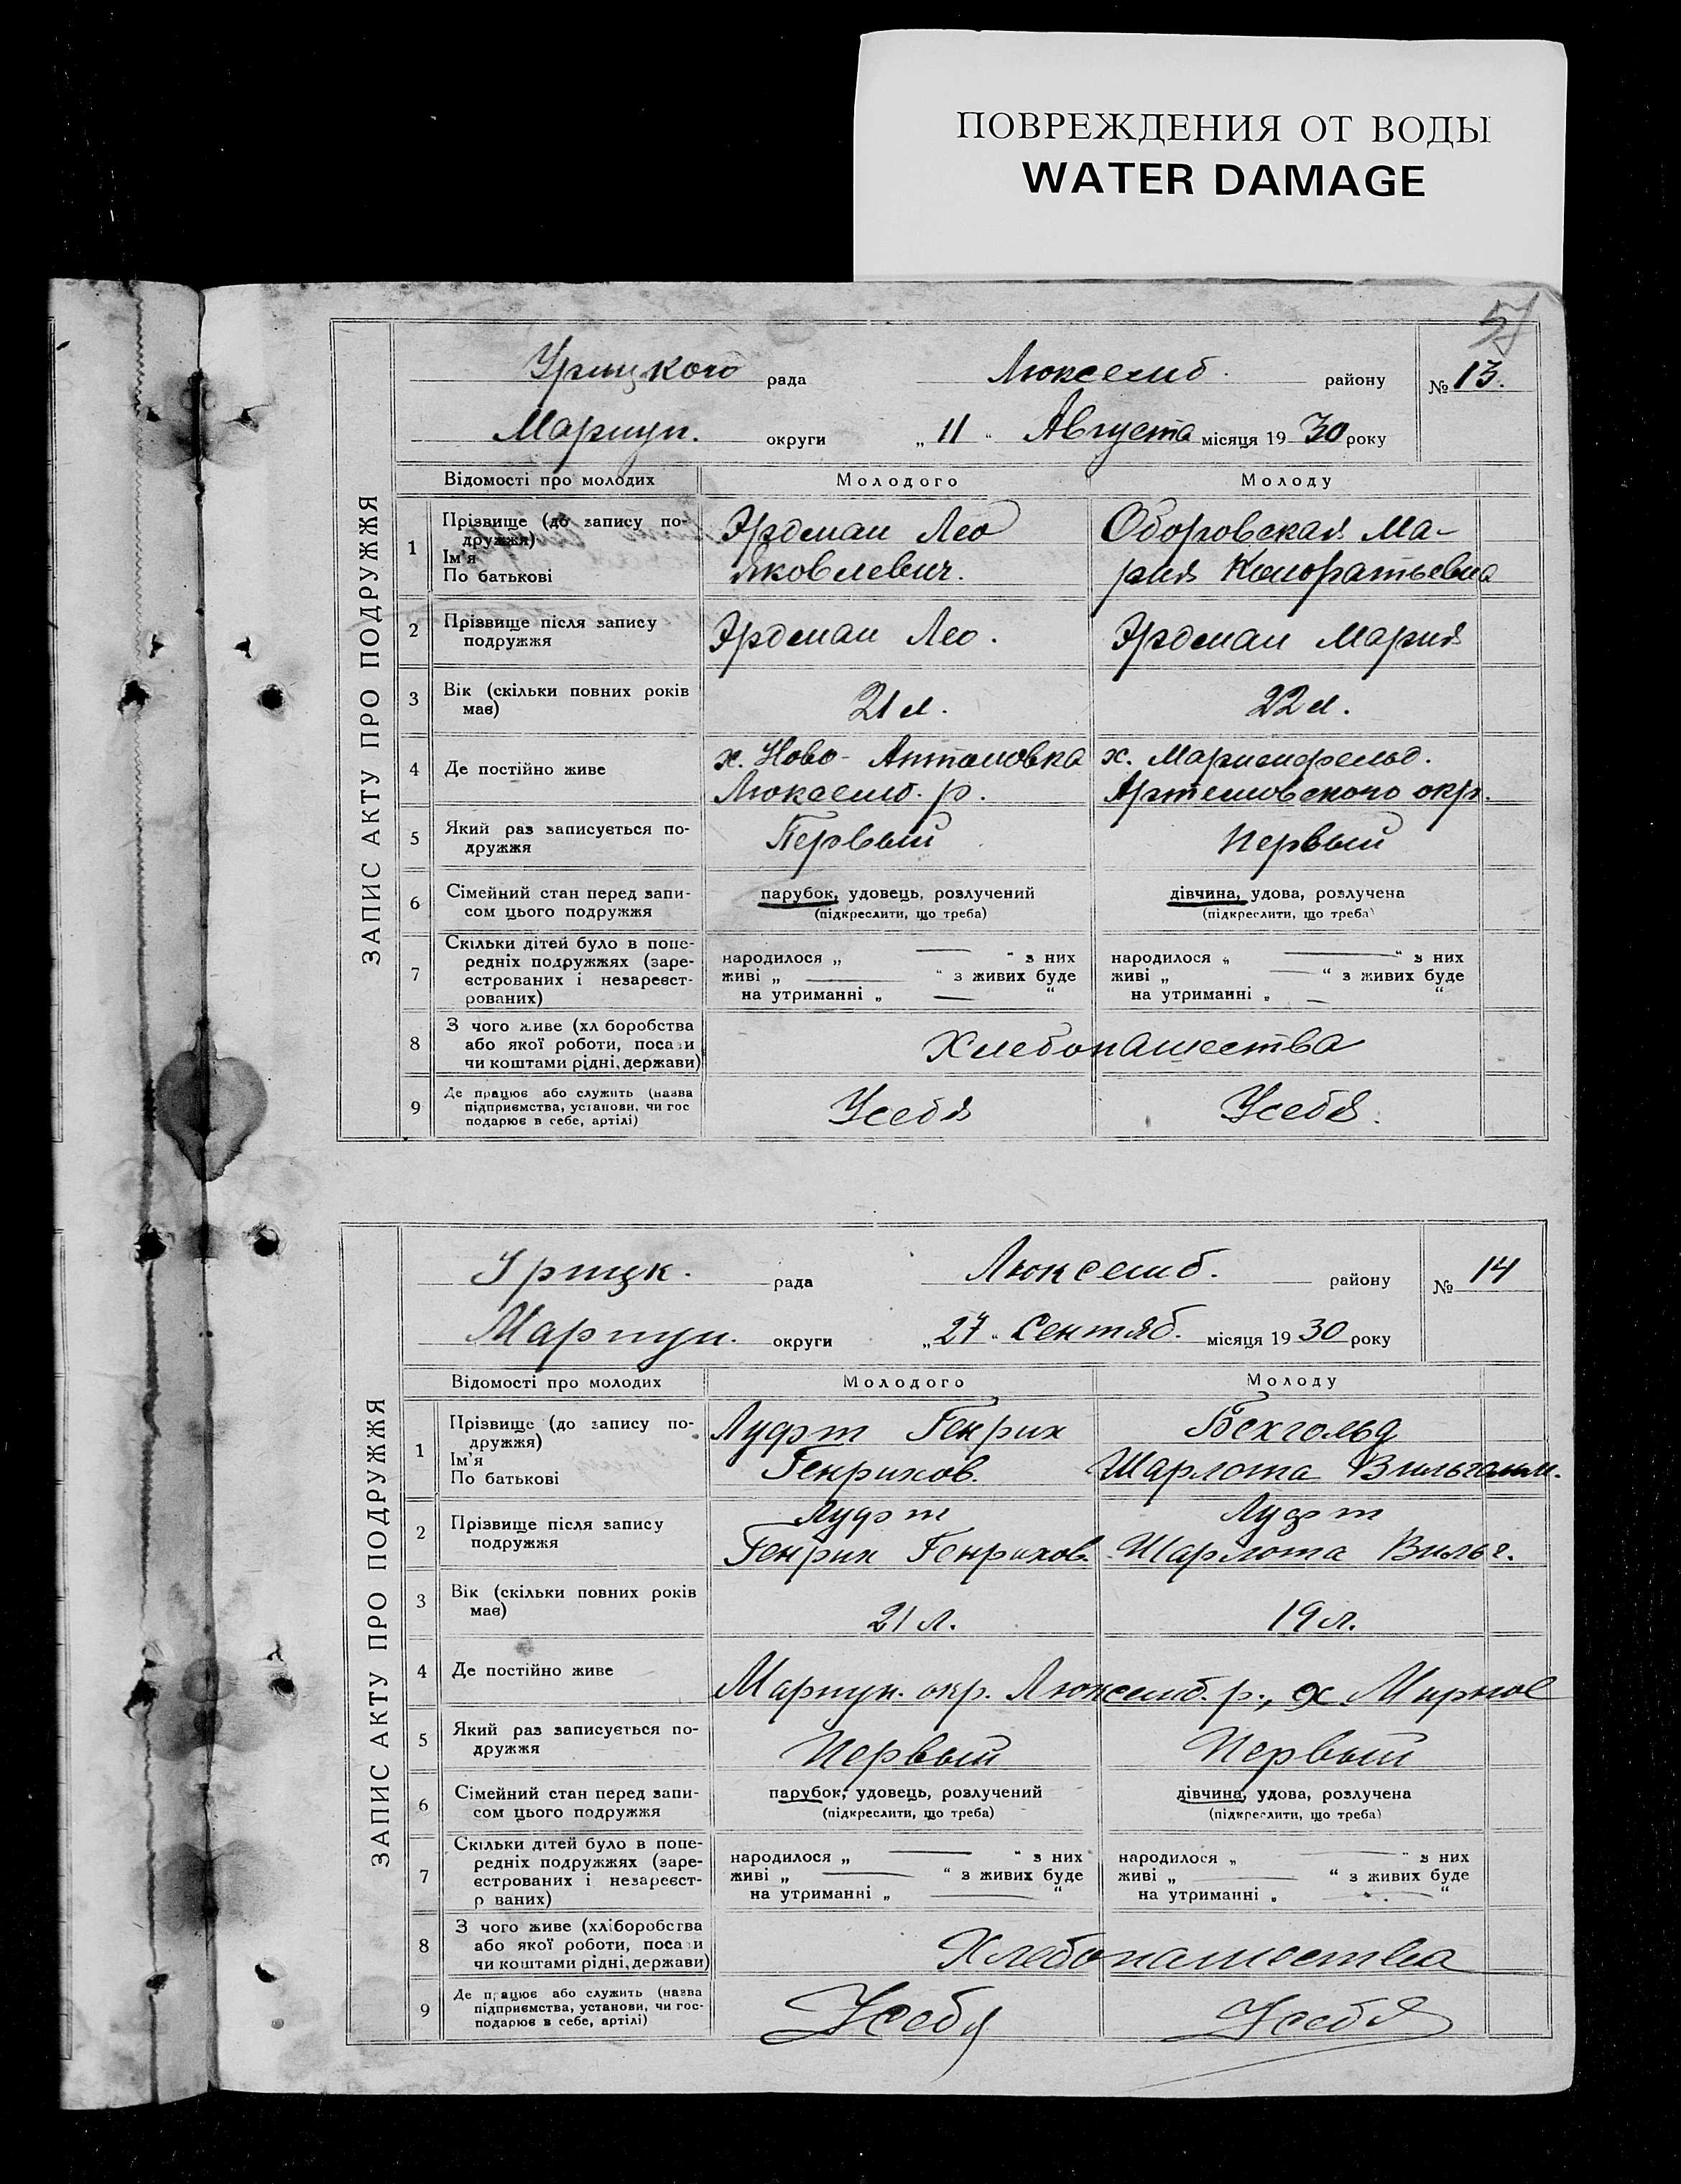 ПОВРЕЖДЕНИЯ ОТ ВОДЫ
WATER DAMAGE
57
ЗАПИС АКТУ ПРО ПОДРУЖЖЯ
Урицкого рада Люксемб. району № 13.
Мариуп. округи „ 11 “ Августа місяця 19 30 року
Відомості про молодих Молодого Молоду
1 Прізвище (до запису по-
дружжя)
Ім’я
По батькові
Эрдман Лео
Яковлевич.
Оборовская Ма-
рия Кондратьевна
2 Прізвище після запису
подружжя
Эрдман Лео.
Эрдман Мария
3 Вік (скільки повних років
має)
21 л.
22 л.
4 Де постійно живе
х. Ново-Антоновка
Люксемб. р.
х. Мариенфельд.
Артемовского окр.
5 Який раз записується по-
дружжя
Первый
Первый
6 Сімейний стан перед запи-
сом цього подружжя
парубок, удовець, розлучений
(підкреслити, що треба)
дівчина, удова, розлучена
(підкреслити, що треба)
7 Скільки дітей було в попе-
редніх подружжях (заре-
єстрованих і незареєст-
рованих)
народилося „ — “ з них
живі „ — “ з живих буде
на утриманні „ — “
народилося „ — “ з них
живі „ — “ з живих буде
на утриманні „ — “
8 З чого живе (хл боробства
або якої роботи, поса и
чи коштами рідні, держави)
Хлебопашества
9 Де працює або служить (назва
підприємства, установи, чи гос
подарює в себе, артілі)
Усебя
Усебя.
ЗАПИС АКТУ ПРО ПОДРУЖЖЯ
Урицк. рада Люксемб. району № 14
Мариуп. округи „ 27 “ Сентяб. місяця 19 30 року
Відомості про молодих Молодого Молоду
1 Прізвище (до запису по-
дружжя)
Ім’я
По батькові
Луфт Генрих
Генрихов.
Бехгольд
Шарлота Вильгельм.
2 Прізвище після запису
подружжя
Луфт
Генрих Генрихов.
Луфт
Шарлота Вильг.
3 Вік (скільки повних років
має)
21 л.
19 л.
4 Де постійно живе
Мариуп. окр. Люксемб. р., х. Мирное
5 Який раз записується по-
дружжя
Первый
Первый
6 Сімейний стан перед запи-
сом цього подружжя
парубок, удовець, розлучений
(підкреслити, що треба)
дівчина, удова, розлучена
(підкреслити, що треба)
7 Скільки дітей було в попе-
редніх подружжях (заре-
єстрованих і незареєст-
р ваних)
народилося „ — “ з них
живі „ — “ з живих буде
на утриманні „ — “
народилося „ — “ з них
живі „ — “ з живих буде
на утриманні „ — “
8 З чого живе (хліборобства
або якої роботи, поса и
чи коштами рідні, держави)
Хлебопашества
9 Де працює або служить (назва
підприємства, установи, чи гос-
подарює в себе, артілі)
Усебя
Усебя